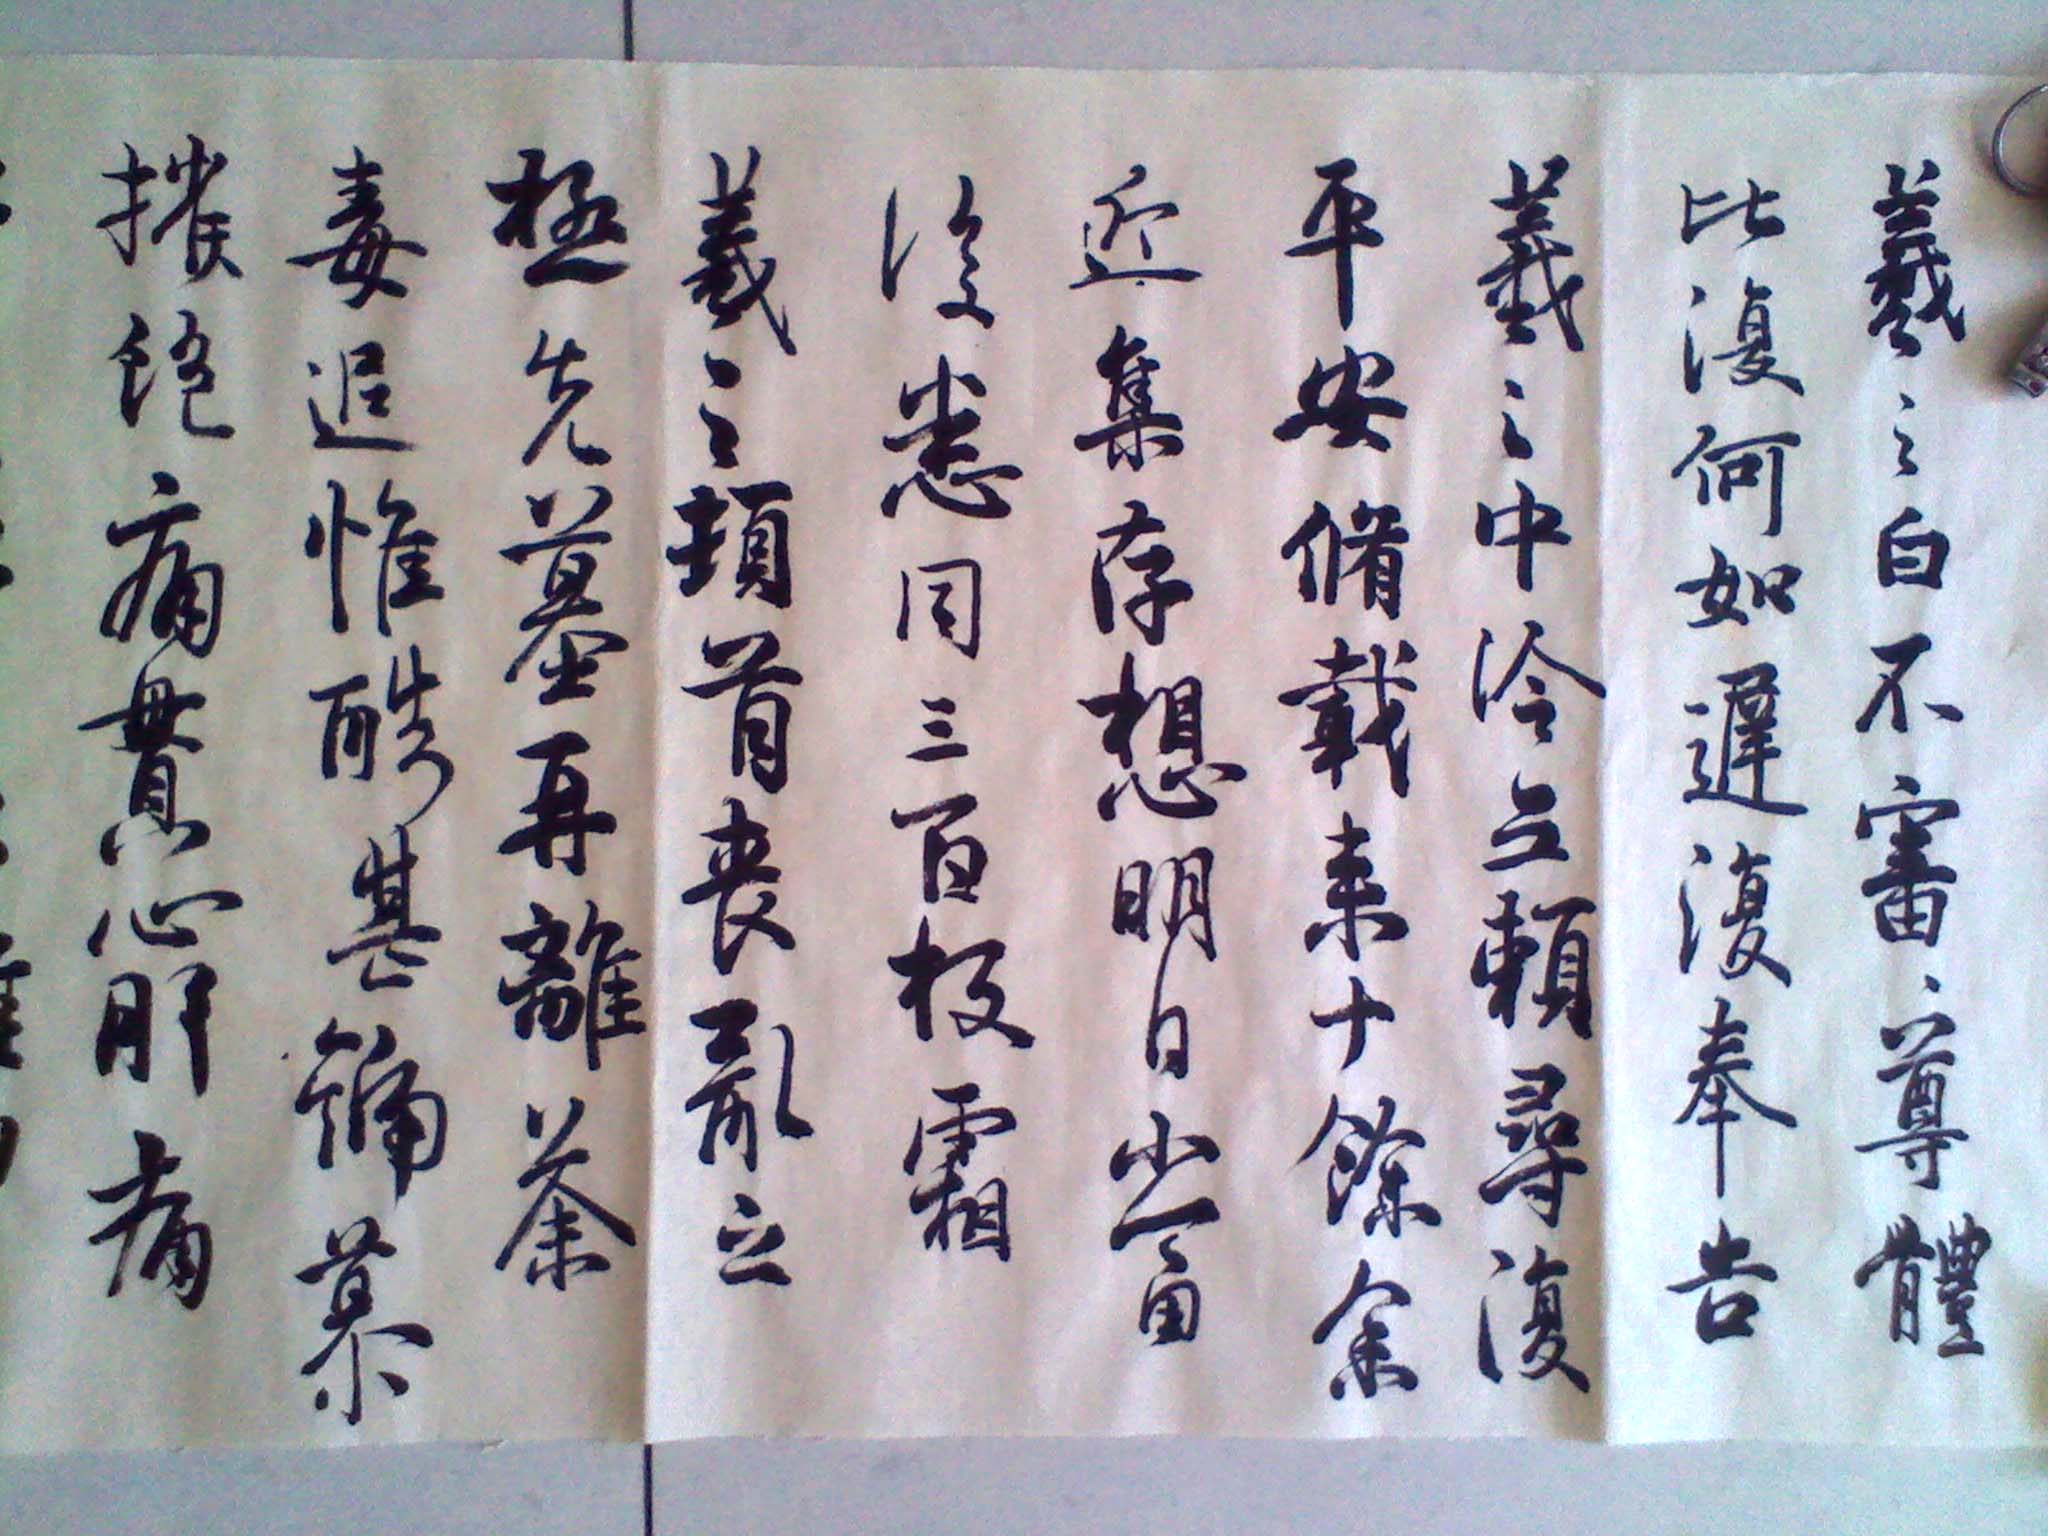 羲之白不審尊體
比復何如遲復奉告
羲之中冷立賴尋復
平安脩載來十餘余
近集存想明日當
復悉同三百枚霜
羲之頓首喪亂之
極先墓再離荼
毒追惟酷甚號慕
摧絕痛貫心肝痛